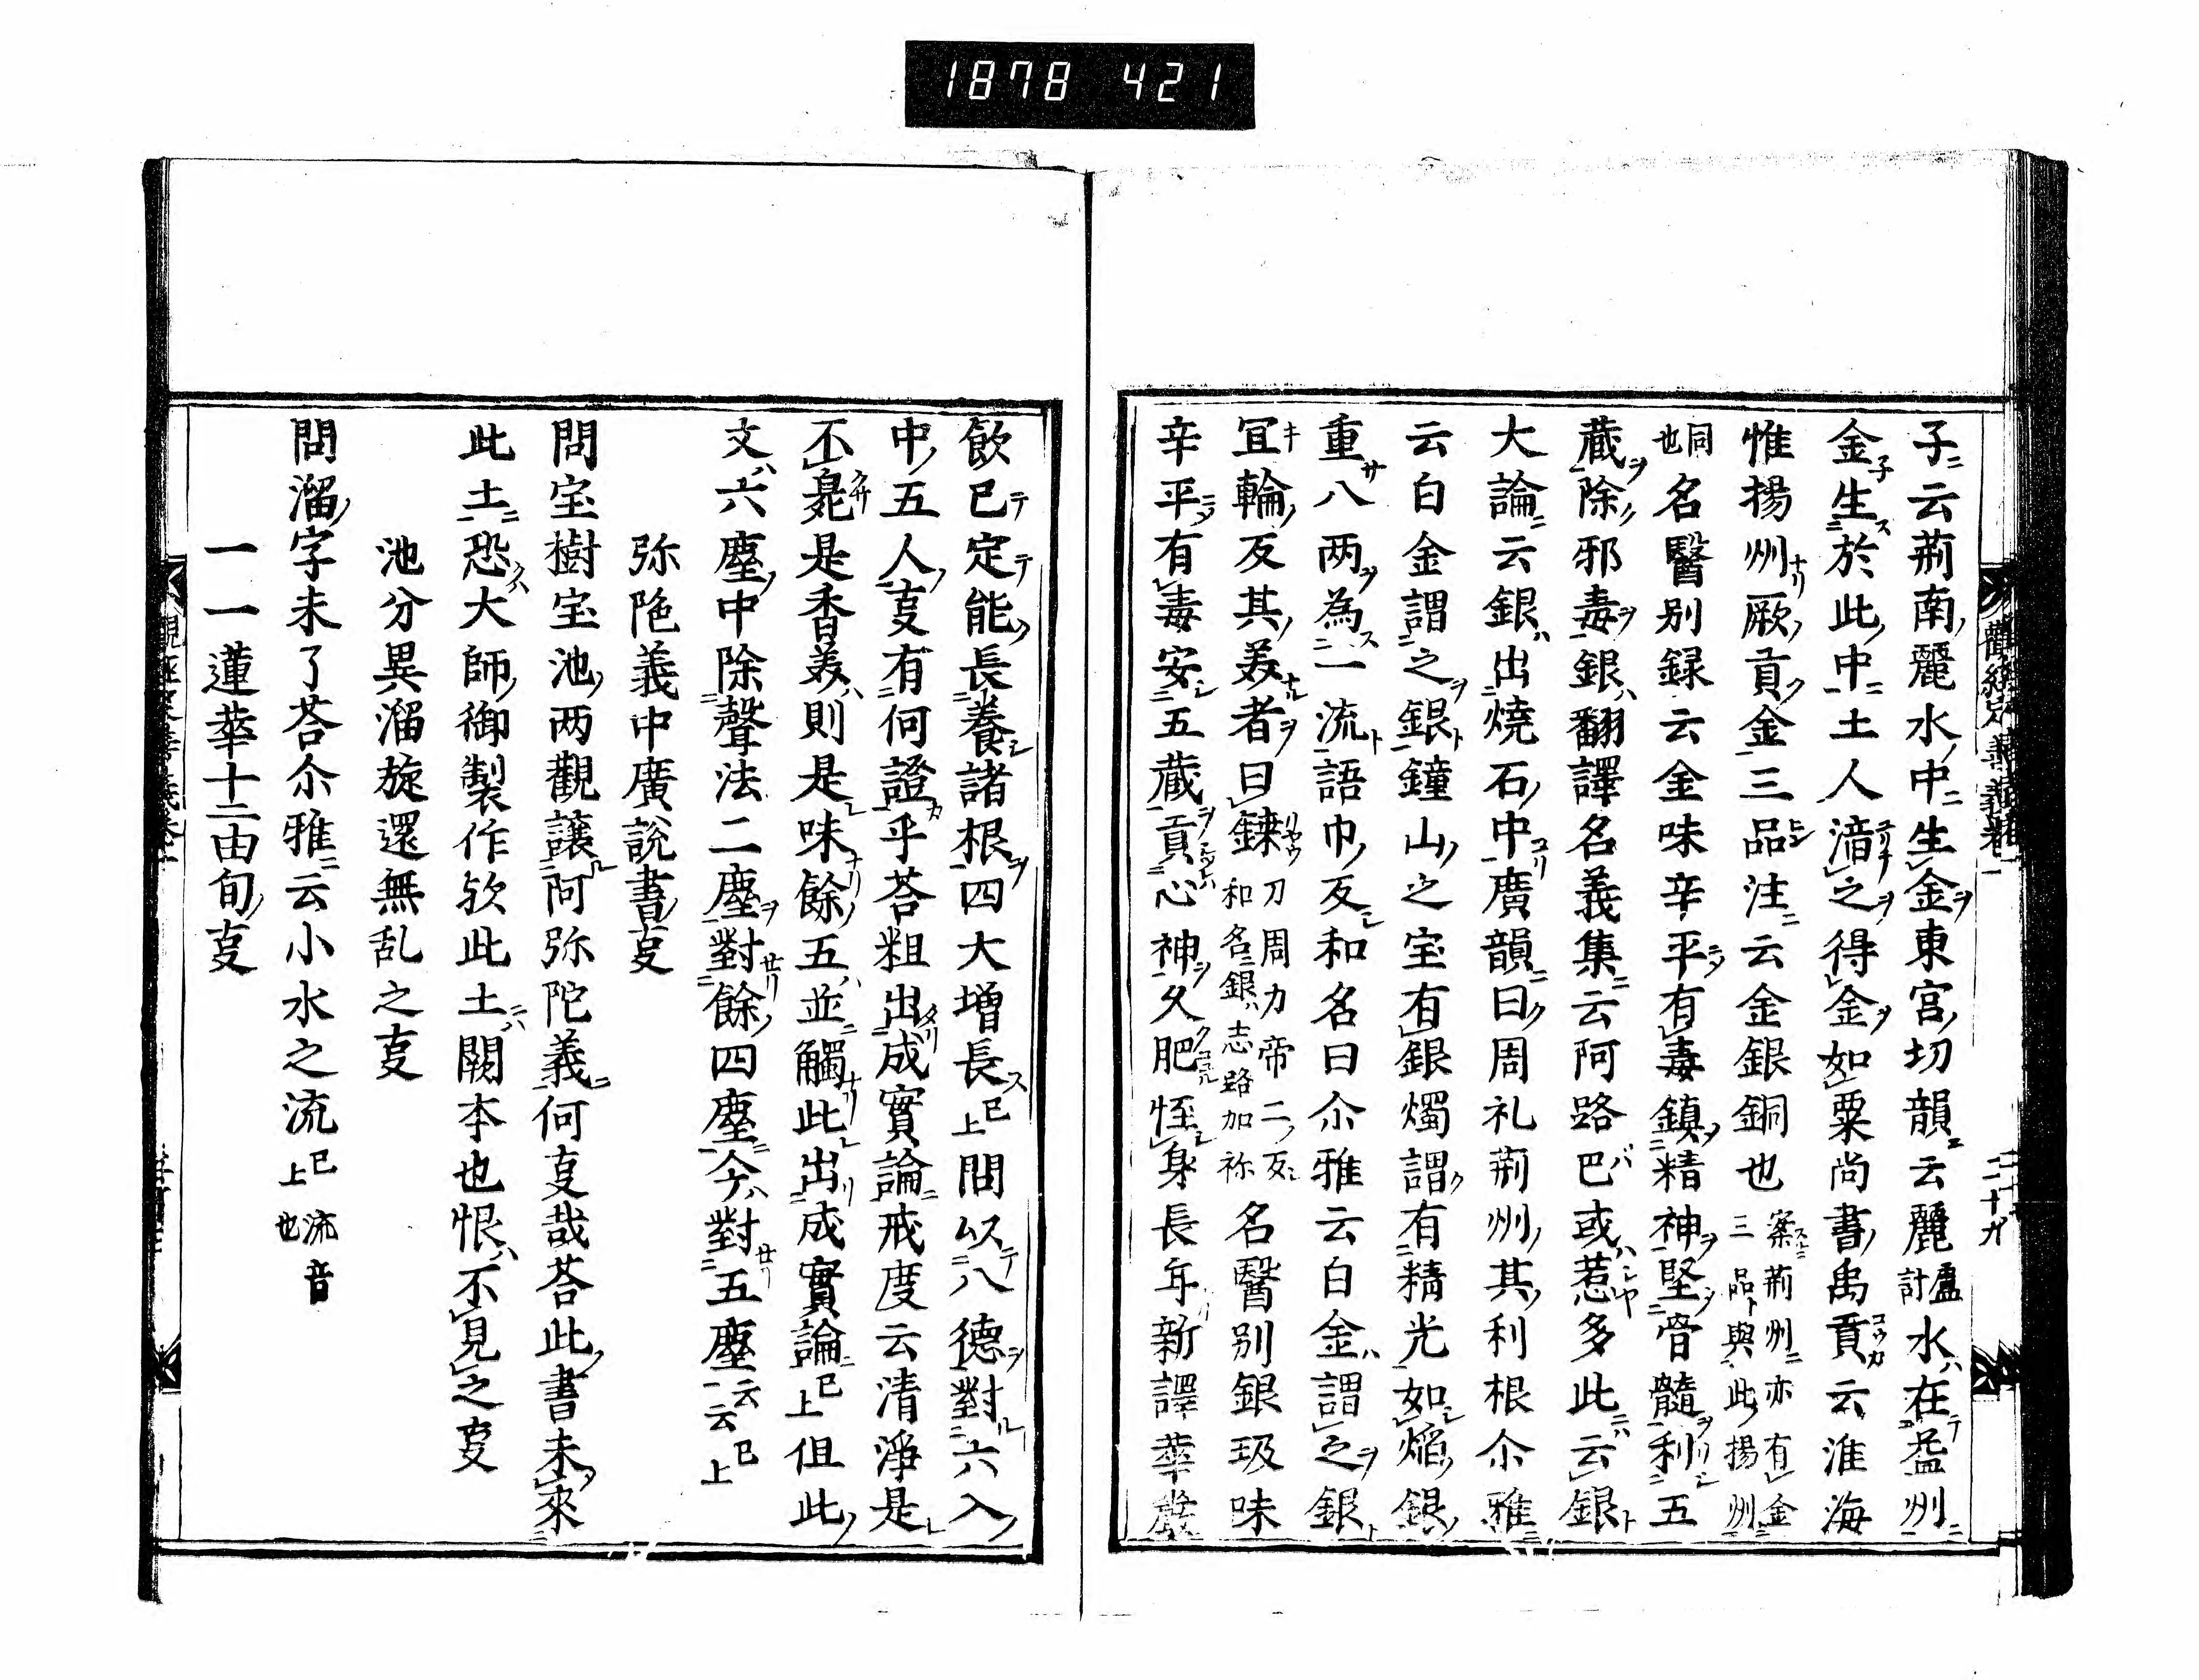 1878 421
子云荊南麗水中生金東宮切韻云麗盧計水在益州
金生於此中土人湆之得金如粟尚書禹貢云淮海
惟揚州厥貢金三品注云金銀銅也案荊州亦有金三品與此揚州
同也名醫別録云金味辛平有毒鎮精神堅骨髓利五
蔵除邪毒銀翻譯名義集云阿路巴或惹多此云銀
大論云銀出燒石中廣韻曰周礼荊州其利根尒雅
云白金謂之銀鐘山之宝有銀燭謂有精光如焔銀
重八両為一流語巾反和名曰尒雅云白金謂之銀
冝輪反其美者曰鏁刀周力帝二反和名銀志路加祢名醫別銀玖味
辛平有毒安五蔵貢心神久肥恎身長年新譯華嚴
飲已定能長養諸根四大増長已上問以八德對六入
中五人㕝有何證乎荅粗出成實論戒度云清淨是
不㒵是香美則是味餘五並觸此出成實論已上但此
文六塵中除聲法二塵對餘四塵今對五塵云云已上
弥陁義中廣說書㕝
問宝樹宝池両觀讓阿弥陀義何㕝哉荅此書未來
此土恐大師御製作欤此土闕本也恨不見之㕝
池分異溜旋還無乱之㕝
問溜字未了荅尒雅云小水之流已上流音也
一一蓮華十二由旬㕝